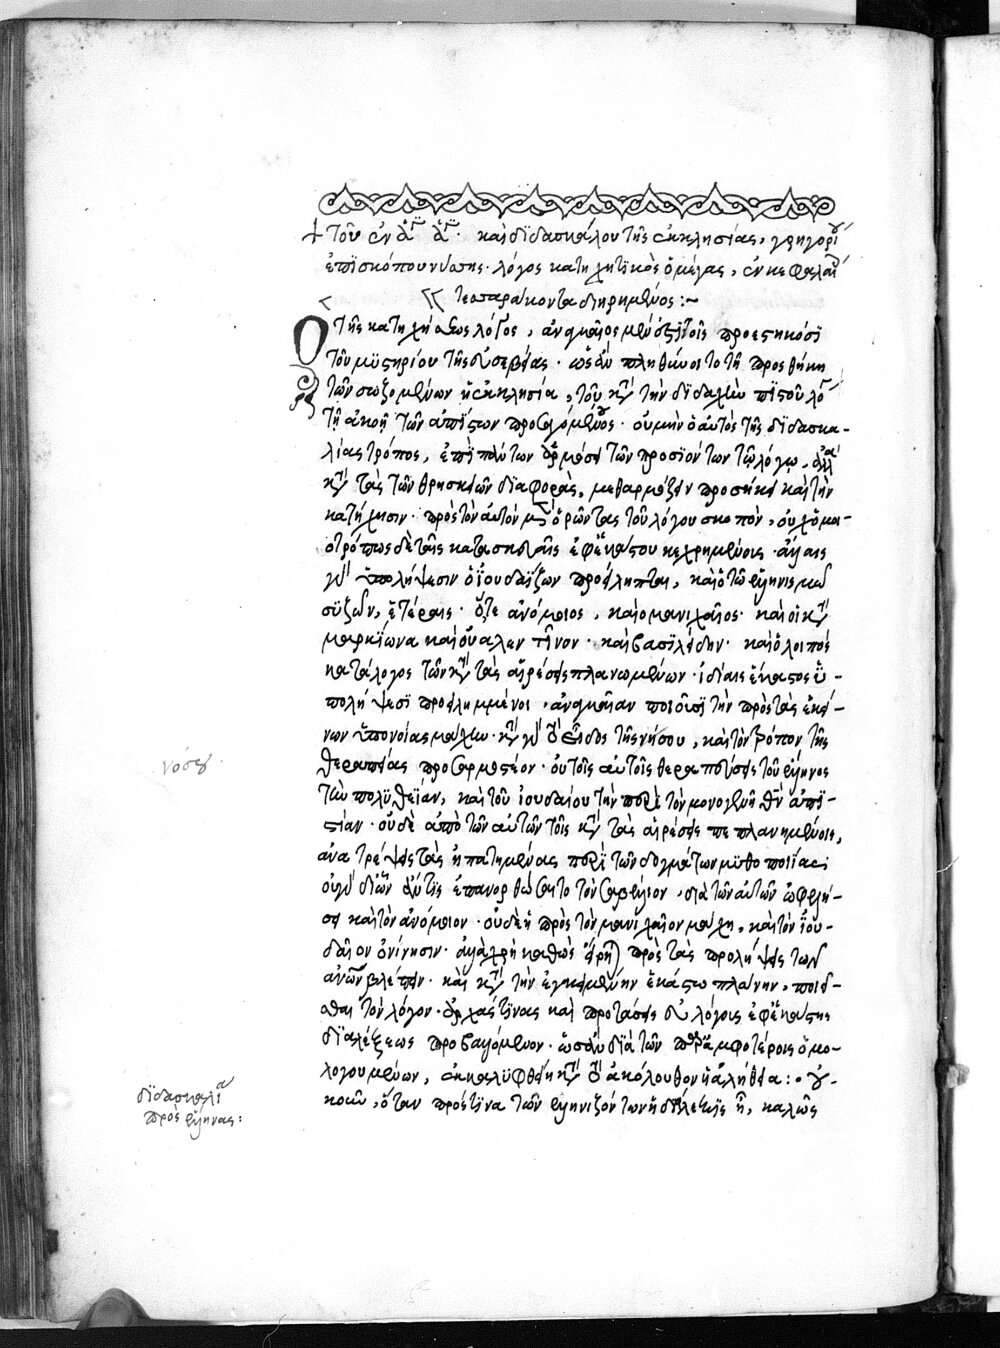 Τοῦ ἐν ἁγ ἁγ. καὶ διδασκάλου τῆς ἐκκλησίας, γρηγορίου
ἐπισκόπου νύσσης. λόγος κατηχητικὸς ὁ μέγας, ἐν κεφαλαί
τεσσαράκοντα διῃρημένος :~
Ὁ τῆς κατηχήσεως λόγος, ἀναγκαῖος μέν ἐστι τοῖς προεστηκόσι
τοῦ μυστηρίου τῆς εὐσεβείας. ὡς ἂν πληθύνοιτο τῇ προσθήκῃ
τῶν σωζομένων ἡ ἐκκλησία, τοῦ κατὰ τὴν διδαχὴν πιστοῦ λό
τῇ ἀκοῇ τῶν ἀπίστων προσαγόμενος. οὐ μὴν ὁ αὐτὸς τῆς διδασκα-
λίας τρόπος, ἐπὶ πάντων ἁρμόσει τῶν προσιόντων τῷ λόγῳ, ἀλλὰ
κατὰ τὰς τῶν θρησκειῶν διαφορὰς, μεθαρμόζειν προσήκει καὶ τὴν
κατήχησιν. πρὸς τὸν αὐτὸν μὲν ὁρῶντας τοῦ λόγου σκοπὸν, οὐχ ὁμοι-
οτρόπως δὲ ταῖς κατασκευαῖς ἐφ' ἑκάστου κεχρημένους. ἄλλαις
γὰρ ὑπολήψεσιν ὁ ἰουδαΐζων προείληπται, καὶ ὁ τῷ ἑλληνισμῷ
συζῶν, ἑτέραις. ὅτε ἀνόμοιος, καὶ ὁ μανιχαῖος. καὶ οἱ κατὰ
μαρκίωνα καὶ οὐαλεντῖνον. καὶ βασιλείδην. καὶ ὁ λοιπὸς
κατάλογος τῶν κατὰ τὰς αἱρέσεις πλανωμένων. ἰδίαις ἕκαστος ὑ-
πολήψεσι προειλημμένοι, ἀναγκαίαν ποιοῦσι τὴν πρὸς τὰς ἐκεί-
νων ὑπονοίας μάχην. κατὰ γὰρ τὸ εἶδος τῆς νόσου, καὶ τὸν τρόπον τῆς
θεραπείας προσαρμοστέον. οὐ τοῖς αὐτοῖς θεραπεύσεις τοῦ ἕλληνος
τὴν πολυθεΐαν, καὶ τοῦ ἰουδαίου τὴν περὶ τὸν μονογενῆ θν ἀπι-
στίαν. οὐδὲ ἀπὸ τῶν αὐτῶν τοῖς κατὰ τὰς αἱρέσεις πεπλανημένοις,
ἀνατρέψεις τὰς ἠπατημένας περὶ τῶν δογμάτων μυθοποιΐας
οὐ γὰρ δι' ὧν ἄν τις ἐπανορθώσαιτο τὸν σαβέλλιον, διὰ τῶν αὐτῶν ὠφελή-
σει καὶ τὸν ἀνόμοιον. οὐδὲ ἡ πρὸς τὸν μανιχαῖον μάχη, καὶ τὸν ἰου-
δαῖον ὀνίνησιν. ἀλλὰ χρὴ καθὼς εἴρηται πρὸς τὰς προλήψεις τῶν
ἀνων βλέπειν. καὶ κατὰ τὴν ἐγκειμένην ἑκάστῳ πλάνην, ποιεῖ-
σθαι τὸν λόγον. ἀρχάς τινας καὶ προτάσεις εὐλόγους ἐφ' ἑκάστης
διαλέξεως προβαλλόμενον. ὡς ἂν διὰ τῶν παρ' ἀμφοτέροις ὁμο-
λογουμένων, ἐκκαλυφθείη κατὰ τὸ ἀκόλουθον ἡ ἀλήθεια :. οὐ-
κοῦν, ὅταν πρός τινα τῶν ἑλληνιζόντων ἡ διάλεξις ᾖ, καλῶς
νόσου
διδασκαλία
πρὸς ἕλληνας: